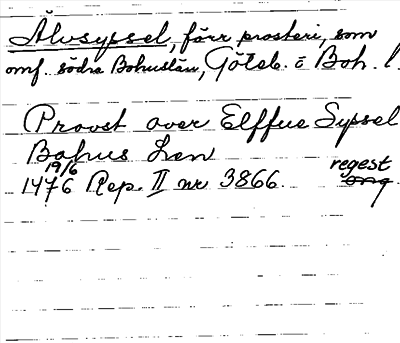 Älvsyssel, förr prosteri, som
omf. södra Bohuslän, Göteb. o Boh. l.
Provst over Elffue Syssel
Bahus Len
19/6
1476 Rep. II nr 3866. regest
orig